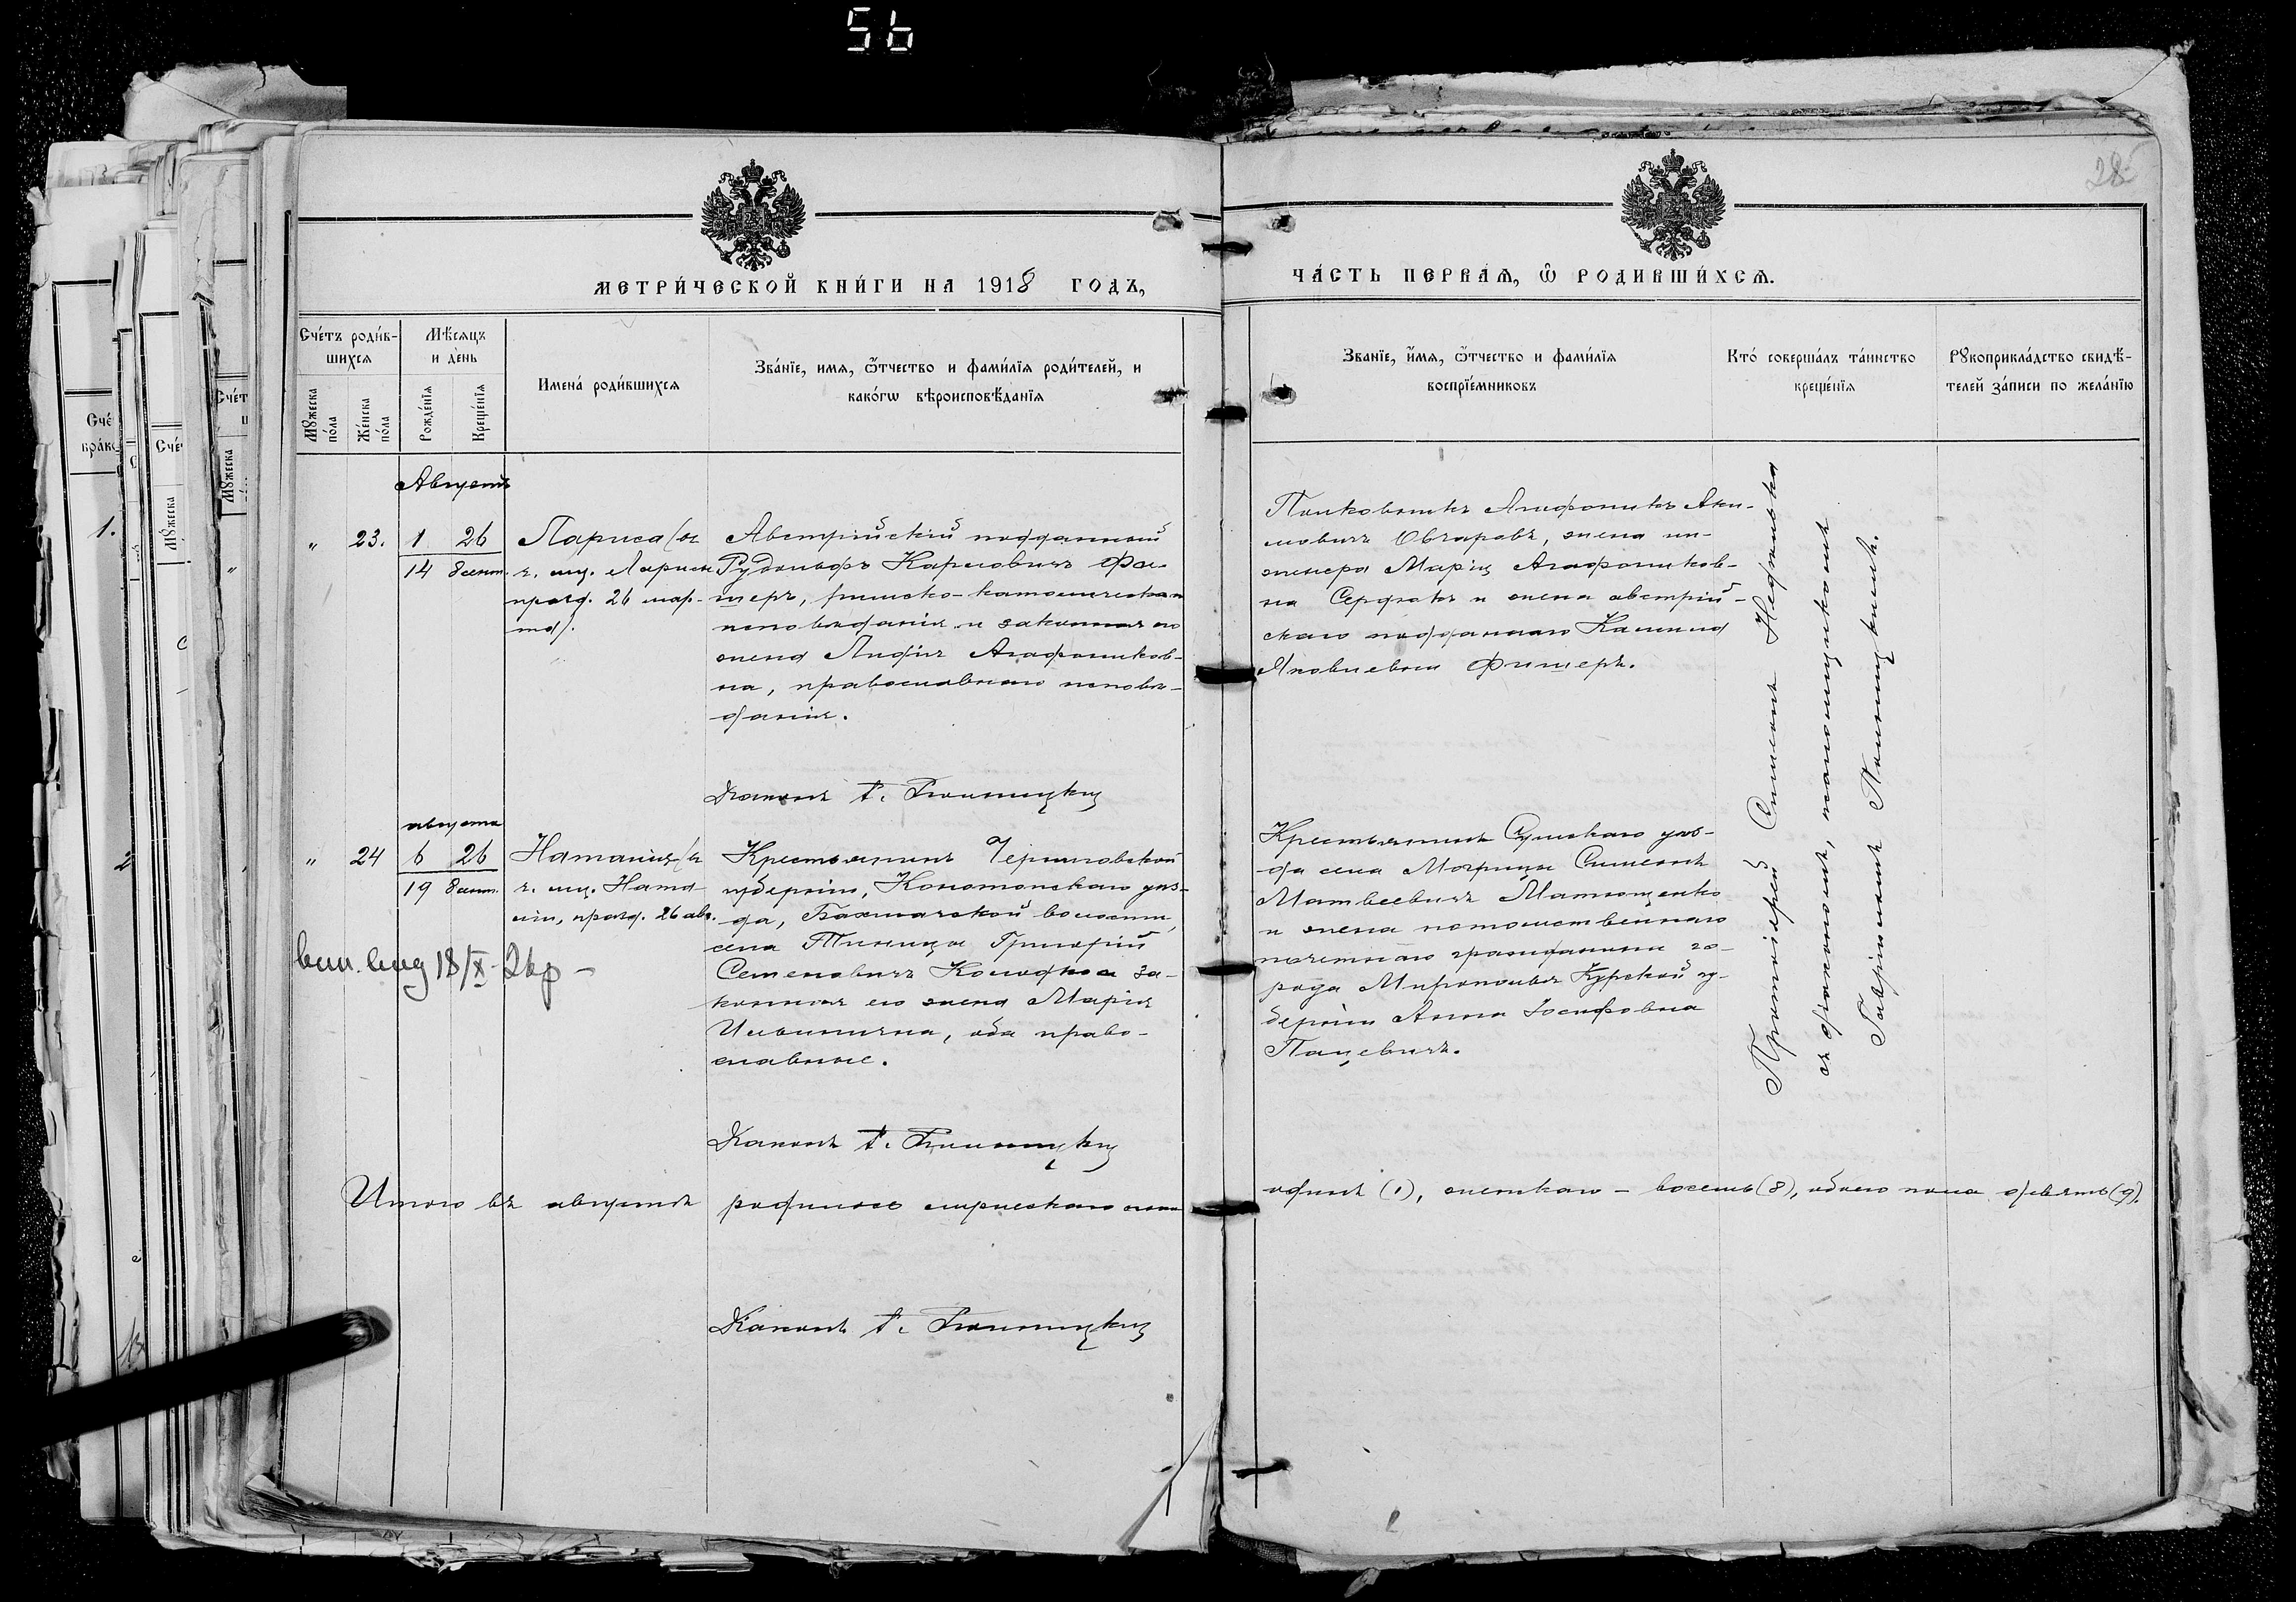 56
28
МЕТРИ́ЧЕСКОЙ КНИ́ГИ НА 1918 ГОДЪ,
ЧА́СТЬ ПЕ́РВАѦ, Ѽ РОДИ́ВШИХСѦ.
Сче́тъ роди́в-
шихсѧ
Мꙋ́жеска по́ла
Же́нска по́ла
Мѣ́сѧцъ
и де́нь
Рожде́нїѧ
Креще́нїѧ
Имена́ роди́вшихсѧ
Зва́нїе, имѧ, ѻ҆́тчество и фами́лїѧ роди́телей, и
како́гѡ вѣроисповѣ́данїѧ
Зва́нїе, и҆́мѧ, ѻ҆́тчество и фами́лїѧ
воспрїе́мниковъ
Кто́ соверша́лъ та́инство
креще́нїѧ
Рꙋкоприкла́дство свидѣ́-
телей за́писи по жела́нїю
Августъ
„ 23. 1 26
14 8 сент.
Лариса (въ
ч. мц. Ларисы
празд. 26 мар-
та).
Австрійскій подданный
Рудольфъ Карловичъ Фи-
шеръ, римско-католическаго
исповѣданія и законная его
жена Лидія Агафоников-
на, православнаго исповѣ-
данія.
Полковникъ Агафоникъ Аки-
мовичъ Овчаровъ, жена ин-
женера Марія Агафоников-
на и жена австрій-
скаго подданнаго
Яковлевна Фишеръ.
Протоіерей Симеонъ
съ діакономъ, псаломщикомъ
Гавріиломъ
Діаконъ
августа
„ 24 6 26
19 8 сент.
Наталия (въ
ч. мц. Ната-
ліи, празд. 26 авг.
Крестьянинъ Черниговской
губерніи, Конотопскаго уѣз-
да, Бахмачской волости,
села Тиницы Григорій
Семеновичъ Колодко и за-
конная его жена Марія
Ильинична, оба право-
славные.
Крестьянинъ Сумскаго уѣз-
да села Могрицы Симеонъ
Матвеевичъ Матющенко
и жена потомственнаго
почетнаго гражданина го-
рода Мирополья Курской гу-
берніи Анна Іосифовна
Пацевичъ.
18/X
Діаконъ
Итого въ августѣ родилось мужескаго пола
одинъ (1), женскаго - восемь (8), обоего пола девять (9).
Діаконъ